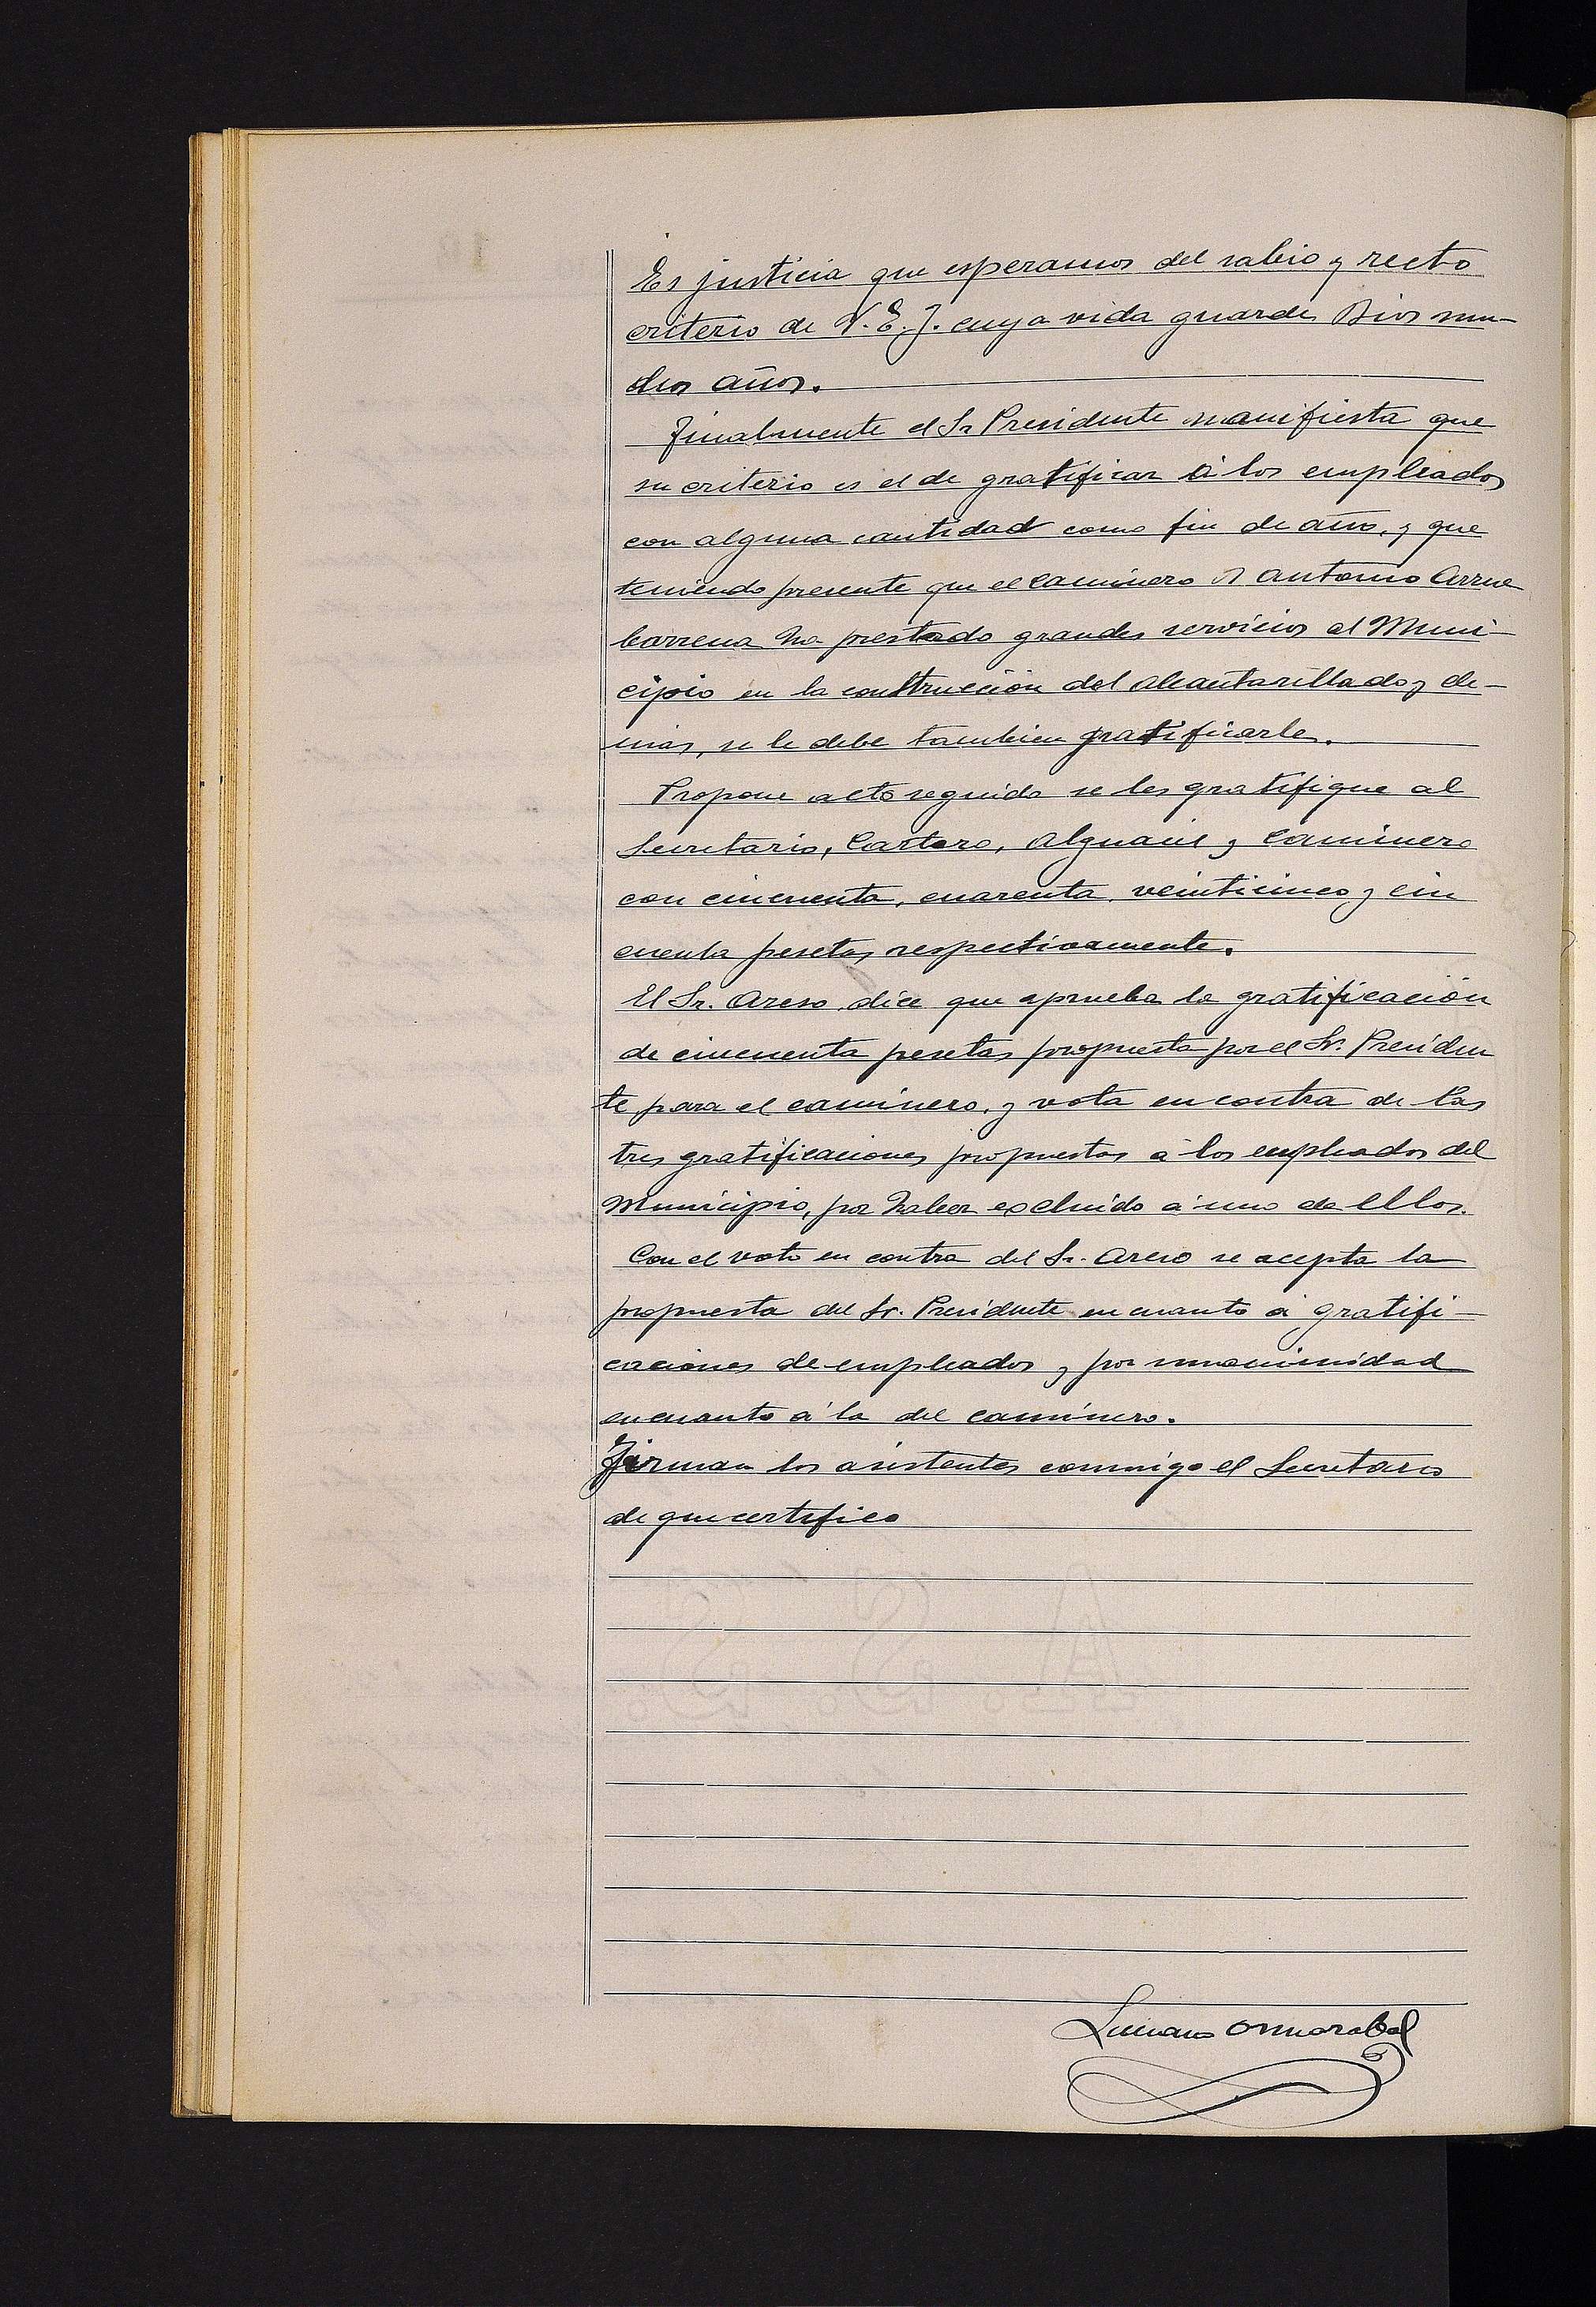 Es justicia que esperamos del sabio y recto
criterio de V.E.J. cuya vida guarde Dios mu-
chos años.
Finalmente el Sr Presidente manifiesta que
su criterio es el de gratificar á los empleados
con alguna cantidad como fin de año, y que
teniendo presente que el caminero D Antonio Arrue
barrena ha prestado grandes servicios al Muni-
cipio en la construcción del alcantarillado y de-
mas, se le debe tambien gratificarle.
Propone acto seguido se les gratifique al
Secretario, Cartero, Alguacil y Caminero
con cincuenta, cuarenta, veinticinco y cin
cuenta pesetas respectivamente.
El Sr. Areso, dice que aprueba la gratificación
de cincuenta pesetas propuesta por el Sr. Presiden
te para el caminero, y vota en contra de las
tres gratificaciones propuestas á los empleados del
Municipio, por haber excluido á uno de ellos.
Con el voto en contra del Sr. Areso se acepta la
propuesta del Sr. Presidente en cuanto á gratifi-
caciones de empleados y por unanimidad
en cuanto á la del caminero.
Firman los asistentes conmigo el Secretario
de que certifico
A. S. S.
Luciano Ormazabal